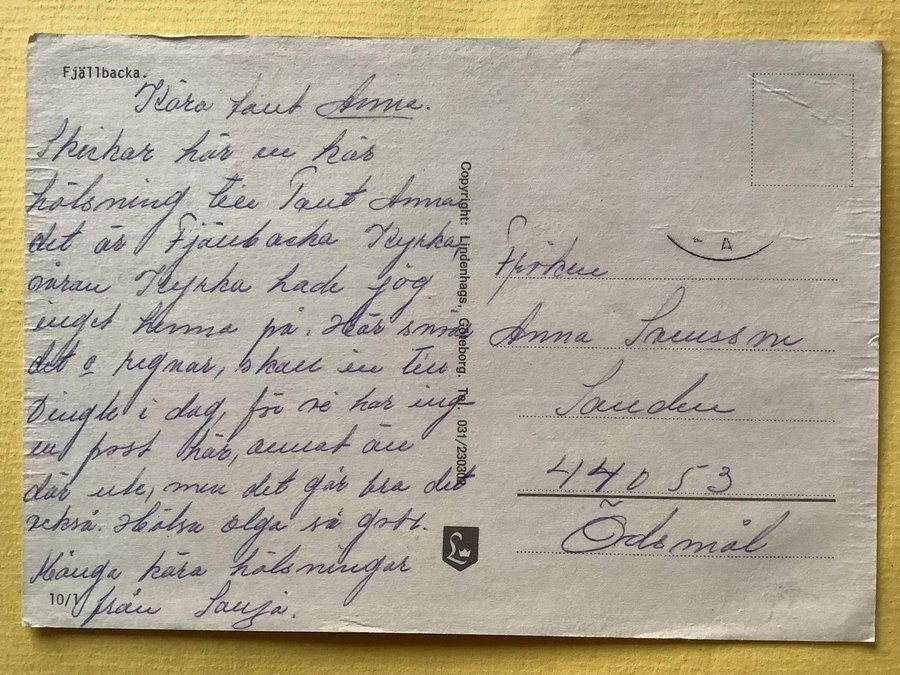 Fjällbacka.
Kära tant Anna.
Skickar här en kär
hälsning till Tant Anna
det är Fjällbacka Kyrka,
våran Kyrka hade jag
inget henna på. Här snöar
det o regnar, skall in till
Dingle i dag, för vi har ing-
en post här, annat än
där ute, men det går bra det
också. Hälsa Olga så gott.
Många kära hälsningar
från Sonja.
10/1
Copyright: Lindenhags, Göteborg. Tel. 031/230302
A
Fröken
Anna
Sanden
440 53
Ödsmål